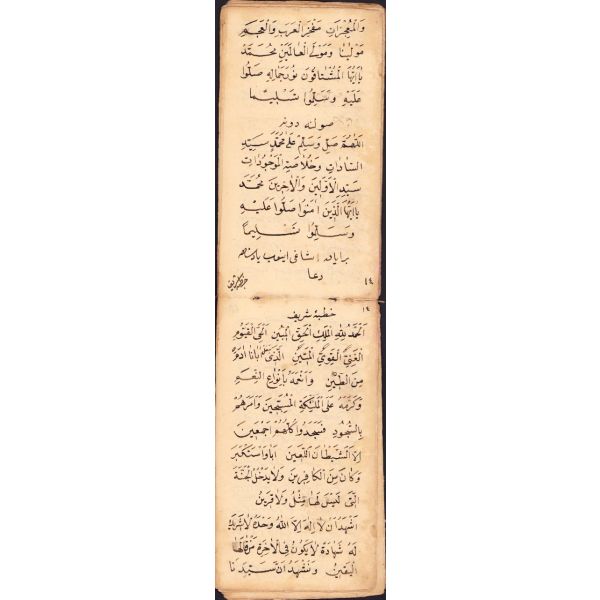 وَالْمُعْجِزَاتِ مَفْخَرِ الْعَرَبِ وَالْعَجَمِ
مَوْلٰينَا وَمَوْلَى الْعَالَمِينَ مُحَمَّدٍ
يَا اَيُّهَا الْمُشْتَاقُونَ نُورِ جَمَالِهِ صَلُّوا
عَلَيْهِ وَسَلِّمُوا تَسْلِيمًا
اَللّٰهُمَّ صَلِّ وَسَلِّمْ عَلٰى مُحَمَّدٍ سَيِّدِ
السَّادَاتِ وَخُلَاصَةِ الْمَوْجُودَاتِ
سَيِّدِ الْاَوَّلِينَ وَالْاٰخِرِينَ مُحَمَّد
يَا اَيُّهَا الَّذِينَ اٰمَنُوا صَلُّوا عَلَيْهِ
وَسَلِّمُوا تَسْلِيمًا
دعا
١٤
١٤
خطبۀ شريف
اَلْحَمْدُ لِلّٰهِ الْمَلِكِ الْحَقِّ الْمُبِينِ الْحَىِّ الْقَيُّومِ
الْغَنِيِّ الْقَوِيِّ الْمَتِينِ الَّذِى خَلَقَ اَبَانَا اٰدَمَ
مِنَ الطِّينِ بِاَنْوَاعِ النِّعَمِ
وَكَرَّمَهُ عَلَى الْمَلٰئِكَةِ الْمُسَبِّحِينَ وَاَمَرَهُمْ
بِالسُّجُودِ فَسَجَدُوا كُلُّهُمْ اَجْمَعِينَ
اِلَّا الشَّيْطَانَ اللَّعِينَ اَبٰى وَاسْتَكْبَرَ
وَكَانَ مِنَ الْكَافِرِينَ وَلَا يَدْخُلُ الْجَنَّةَ
الَّتِى لَيْسَ لَهَا مِثْلٌ وَلَا قَرِينٌ
اَشْهَدُ اَنْ لَا اِلٰهَ اِلَّا اللّٰهُ وَحْدَهُ لَا شَرِيكَ
لَهُ شَهَادَةً لَا يَكُونُ فِى الْاٰخِرَةِ مَنْ قَالَهَا
الْيَقِينَ وَنَشْهَدُ اَنَّ سَيِّدَنَا